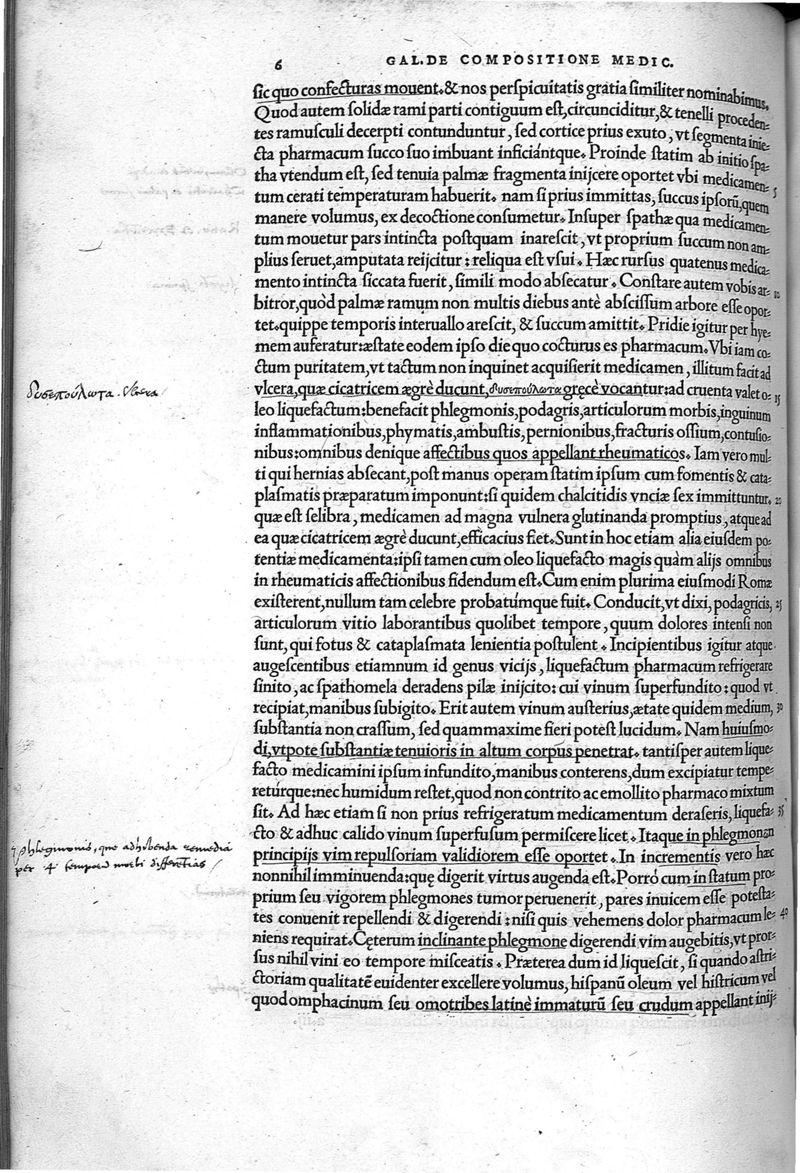 6 GAL. DE COMPOSITIONE MEDIC.
ſic quo confecturas mouent. & nos perſpicuitatis gratia ſimiliter nominabimus.
Quod autem ſolidæ rami parti contiguum eſt, circunciditur, & tenelli proceden-
tes ramuſculi decerpti contunduntur, ſed cortice prius exuto, vt ſegmenta inie-
cta pharmacum ſucco ſuo imbuant inficiántque. Proinde ſtatim ab initio ſpa-
tha vtendum eſt, ſed tenuia palmæ fragmenta inijcere oportet vbi medicamen- 5
tum cerati temperaturam habuerit. nam ſi prius immittas, ſuccus ipſorũ, quem
manere volumus, ex decoctione conſumetur. Inſuper ſpathæ qua medicamen-
tum mouetur pars intincta poſtquam inareſcit, vt proprium ſuccum non am-
plius ſeruet, amputata reijcitur: reliqua eſt vſui. Hæc rurſus quatenus medica-
mento intincta ſiccata fuerit, ſimili modo abſecatur. Conſtare autem vobis ar- 10
bitror, quòd palmæ ramum non multis diebus antè abſciſſum arbore eſſe opor-
tet. quippe temporis interuallo areſcit, & ſuccum amittit. Pridie igitur per hye-
mem auferatur: æſtate eodem ipſo die quo cocturus es pharmacum. Vbi iam co-
ctum puritatem, vt tactum non inquinet acquiſierit medicamen, illitum facit ad
vlcera, quæ cicatricem ægrè ducunt, δυσεπούλωτα gręcè vocantur: ad cruenta valet o- 15
leo liquefactum: benefacit phlegmonis, podagris, articulorum morbis, inguinum
inflammationibus, phymatis, ambuſtis, pernionibus, fracturis oſſium, contuſio-
nibus: omnibus denique affectibus quos appellant rheumaticos. Iam vero mul-
ti qui hernias abſecant, poſt manus operam ſtatim ipſum cum fomentis & cata-
plaſmatis præparatum imponunt: ſi quidem chalcitidis vnciæ ſex immittuntur, 20
quæ eſt ſelibra, medicamen ad magna vulnera glutinanda promptius, atque ad
ea quæ cicatricem ægrè ducunt, efficacius fiet. Sunt in hoc etiam alia eiuſdem po-
tentiæ medicamenta: ipſi tamen cum oleo liquefacto magis quàm alijs omnibus
in rheumaticis affectionibus fidendum eſt. Cum enim plurima eiuſmodi Romæ
exiſterent, nullum tam celebre probatúmque fuit. Conducit, vt dixi, podagricis, 25
articulorum vitio laborantibus quolibet tempore, quum dolores intenſi non
ſunt, qui fotus & cataplaſmata lenientia poſtulent. Incipientibus igitur atque
augeſcentibus etiamnum id genus vicijs, liquefactum pharmacum refrigerare
ſinito, ac ſpathomela deradens pilæ inijcito: cui vinum ſuperfundito: quod vt
recipiat, manibus ſubigito. Erit autem vinum auſterius, ætate quidem medium, 30
ſubſtantia non craſſum, ſed quammaxime fieri poteſt lucidum. Nam huiuſmo-
di, vtpote ſubſtantiæ tenuioris in altum corpus penetrat. tantiſper autem lique-
facto medicamini ipſum infundito, manibus conterens, dum excipiatur tempe-
retúrque: nec humidum reſtet, quod non contrito ac emollito pharmaco mixtum
ſit. Ad hæc etiam ſi non prius refrigeratum medicamentum deraſeris, liquefa- 35
cto & adhuc calido vinum ſuperfuſum permiſcere licet. Itaque in phlegmonæn
principijs vim repulſoriam validiorem eſſe oportet. In incrementis vero hæc
nonnihil imminuenda: quę digerit virtus augenda eſt. Porró cum in ſtatum pro-
prium ſeu vigorem phlegmones tumor peruenerit, pares inuicem eſſe poteſta-
tes conuenit repellendi & digerendi: niſi quis vehemens dolor pharmacum le- 40
niens requirat. Cęterum inclinante phlegmone digerendi vim augebitis, vt pror-
ſus nihil vini eo tempore miſceatis. Præterea dum id liqueſcit, ſi quando aſtri-
ctoriam qualitatẽ euidenter excellere volumus, hiſpanũ oleum vel hiſtricum vel
quod omphacinum ſeu omotribes latinè immaturũ ſeu crudum appellant inij-
δυσεπούλωτα. vlcera
phlegmonis, quæ adhibenda remedia
per 4 temporũ morbi differentias